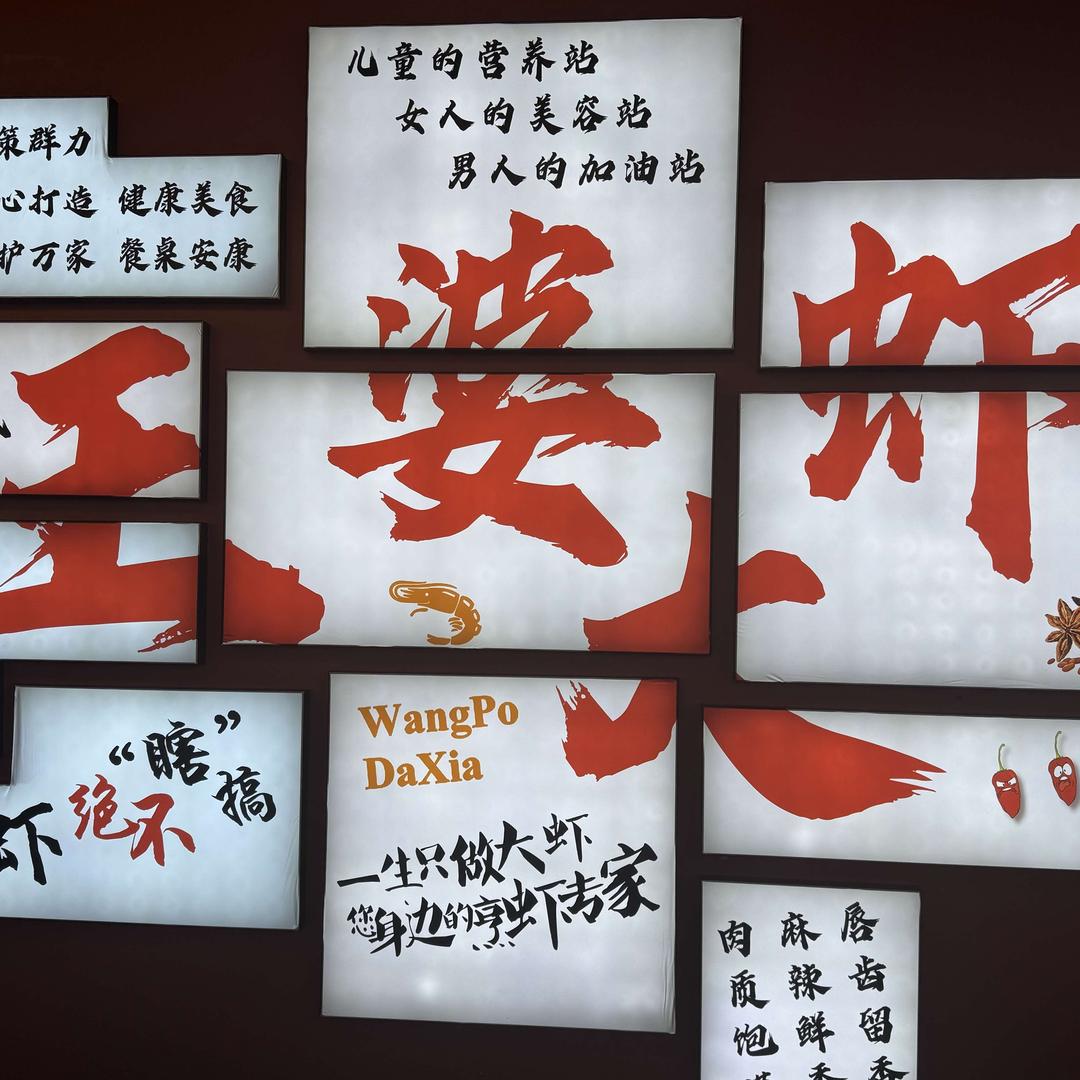 儿童的营养站
女人的美容站
男人的加油站
策群力
心打造 健康美食
护万家 餐桌安康
王婆大虾
WangPo
DaXia
一生只做大虾
您身边的烹虾专家
虾绝不“瞎”搞
唇齿留香
麻辣鲜香
肉质饱